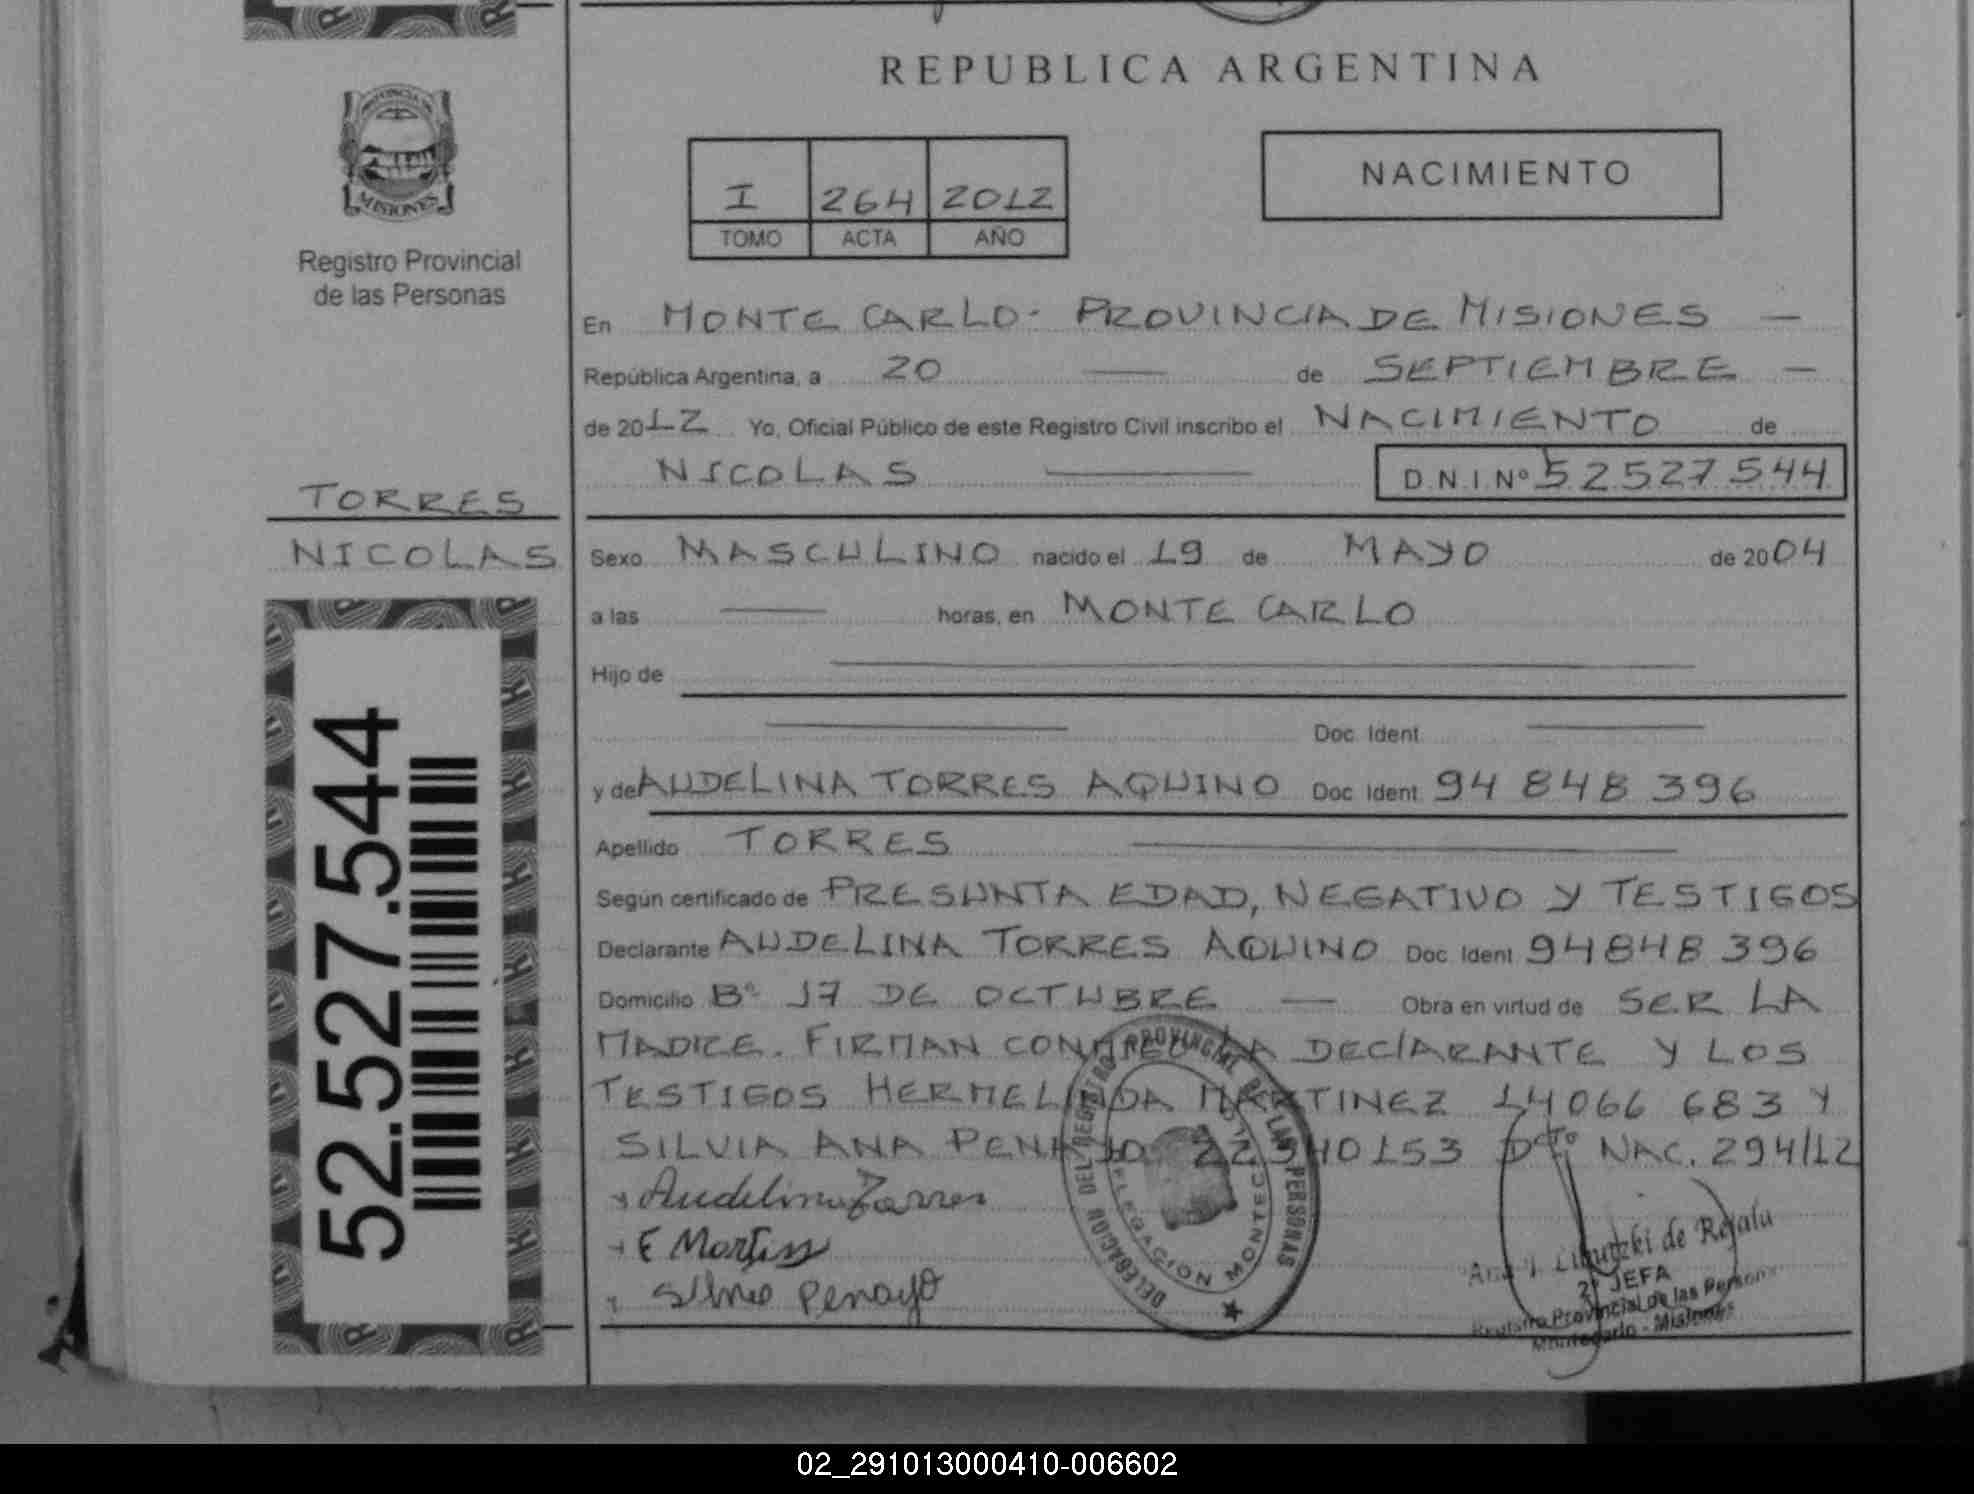 REPUBLICA ARGENTINA
PROVINCIA DE
MISIONES
Registro Provincial
de las Personas
I 264 2012
TOMO ACTA AÑO
NACIMIENTO
En MONTE CARLO - PROVINCIA DE MISIONES —
República Argentina, a 20 — de SEPTIEMBRE —
de 2012 Yo, Oficial Público de este Registro Civil inscribo el NACIMIENTO de
NICOLAS — D.N.I.Nº 52527544
TORRES
NICOLAS
Sexo MASCULINO nacido el 19 de MAYO de 2004
a las — horas, en MONTE CARLO
Hijo de —
— Doc. Ident. —
y de AUDELINA TORRES AQUINO Doc. Ident. 94 848 396
Apellido TORRES —
Según certificado de PRESUNTA EDAD, NEGATIVO Y TESTIGOS
Declarante AUDELINA TORRES AQUINO Doc. Ident. 94848 396
Domicilio Bº 17 DE OCTUBRE — Obra en virtud de SER LA
MADRE. FIRMAN CONMIGO LA DECLARANTE Y LOS
TESTIGOS HERMELINDA MARTINEZ 14066 683 Y
SILVIA ANA PENAYO 22340153 Dto NAC. 294/12
Audelina Torres
E Martines
Silvia Penayo
DELEGACION DEL REGISTRO PROVINCIAL DE LAS PERSONAS
DELEGACION MONTECARLO
de Rejala
2º JEFA
Registro Provincial de las Personas
Montecarlo - Misiones
52.527.544
02_291013000410-006602